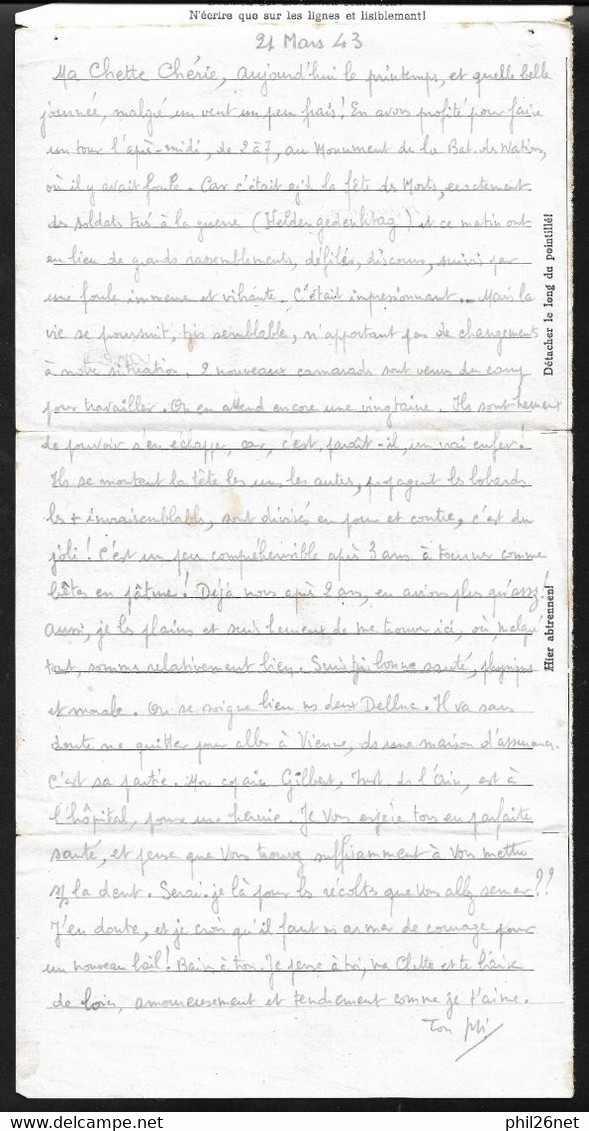 N'écrire que sur les lignes et lisiblement!
21 Mars 43
Ma Chette Chérie, aujourd'hui le printemps, et quelle belle
journée, malgré un vent un peu frais! En avons profité pour faire
un tour l'après-midi, de 2 à 7, au Monument de la Bat. des Nations,
où il y avait foule. Car c'était la fête des Morts, exactement
des soldats tués à la guerre (Heldengedenktag) et ce matin ont
eu lieu de grands rassemblements, défilés, discours, suivis par
une foule immense et vibrante. C'était impressionnant... Mais la
vie se poursuit, semblable, n'apportant pas de changement
à notre situation. 2 nouveaux camarades sont venus du camp
pour travailler. On en attend encore une vingtaine. Ils sont heureux
de pouvoir s'en échapper, car, c'est, paraît-il, un vrai enfer!
Ils se montent la tête les uns les autres, propagent les bobards
les + invraisemblables, sont divisés en pour et contre, c'est du
joli! C'est un peu compréhensible après 3 ans à tourner comme
bêtes en pâture! Déjà nous après 2 ans, en avions plus qu'assez!
Aussi, je les plains et suis heureux de me trouver ici, où, malgré
tout, sommes relativement bien. Suis bonne santé, physique
et morale. On se soigne bien ns deux Delluc. Il va sans
doute me quitter pour aller à Vienne, ds une maison d'assurances.
C'est sa partie. Mon copain Gilbert, de l'Ain, est à
l'hôpital, pour une hernie. Je vous espère tous en parfaite
santé, et pense que vous trouvez suffisamment à vous mettre
s/s la dent. Serai-je là pour les récoltes que vous allez semer??
J'en doute, et je crois qu'il faut ns armer de courage pour
un nouveau bail! à tous. Je pense à toi, ma Chette et te baise
de loin, amoureusement et tendrement comme je t'aime.
Ton
Détacher le long du pointillé!
Hier abtrennen!
© phil26net
phil26net